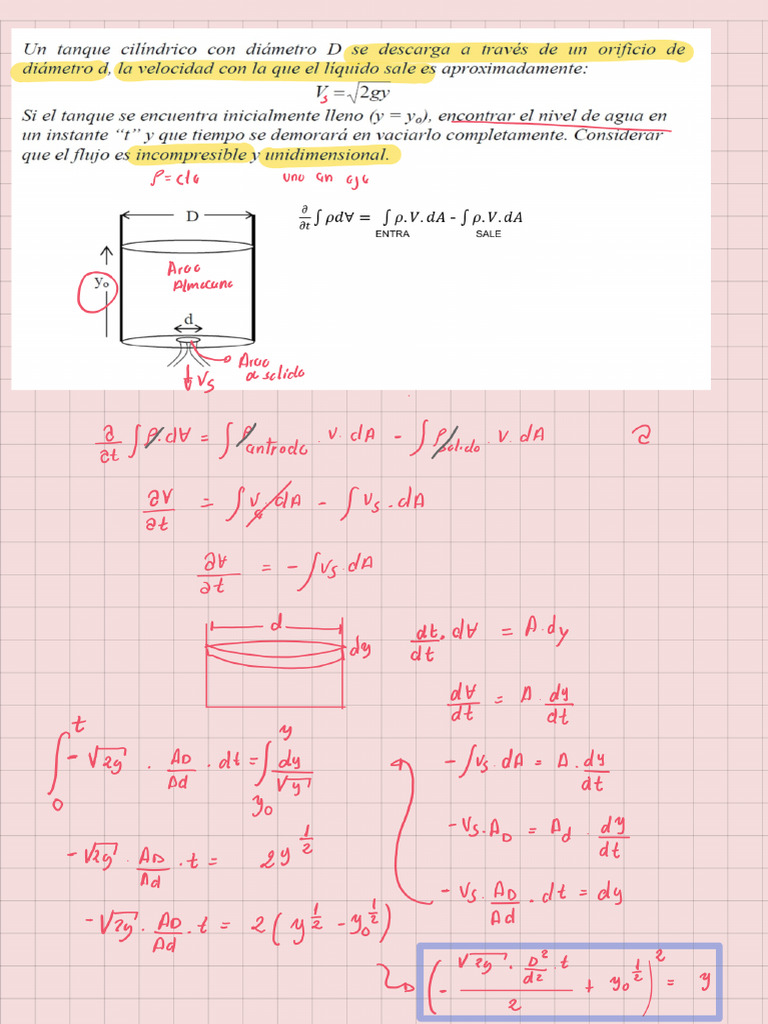 Un tanque cilíndrico con diámetro D se descarga a través de un orificio de
diámetro d, la velocidad con la que el líquido sale es aproximadamente:
V_s = √2gy
Si el tanque se encuentra inicialmente lleno (y = y₀), encontrar el nivel de agua en
un instante “t” y que tiempo se demorará en vaciarlo completamente. Considerar
que el flujo es incompresible y unidimensional.
ρ = cta uno an aja
D
∂/∂t ∫ρd∀ = ∫ρ.V.dA - ∫ρ.V.dA
ENTRA SALE
Area
Almacena
y₀
d
Area
de salida
Vs
∂/∂t ∫ρ.d∀ = ∫ρ antrada . V. dA - ∫ρ salida . V. dA ∂
∂∀/∂t = ∫V. dA - ∫Vs. dA
∂∀/∂t = - ∫Vs. dA
d
dy
dt/dt . d∀ = A. dy
d∀/dt = A. dy/dt
- ∫Vs. dA = A. dy/dt
- Vs. A_D = A_d . dy/dt
- Vs. A_D/A_d . dt = dy
∫₀ᵗ - √2g . A_D/A_d . dt = ∫_{y₀}^{y} dy/√y
- √2g . A_D/A_d . t = 2y^{1/2}
- √2g . A_D/A_d . t = 2(y^{1/2} - y₀^{1/2})
(- (√2g . D²/d² . t)/2 + y₀^{1/2})² = y